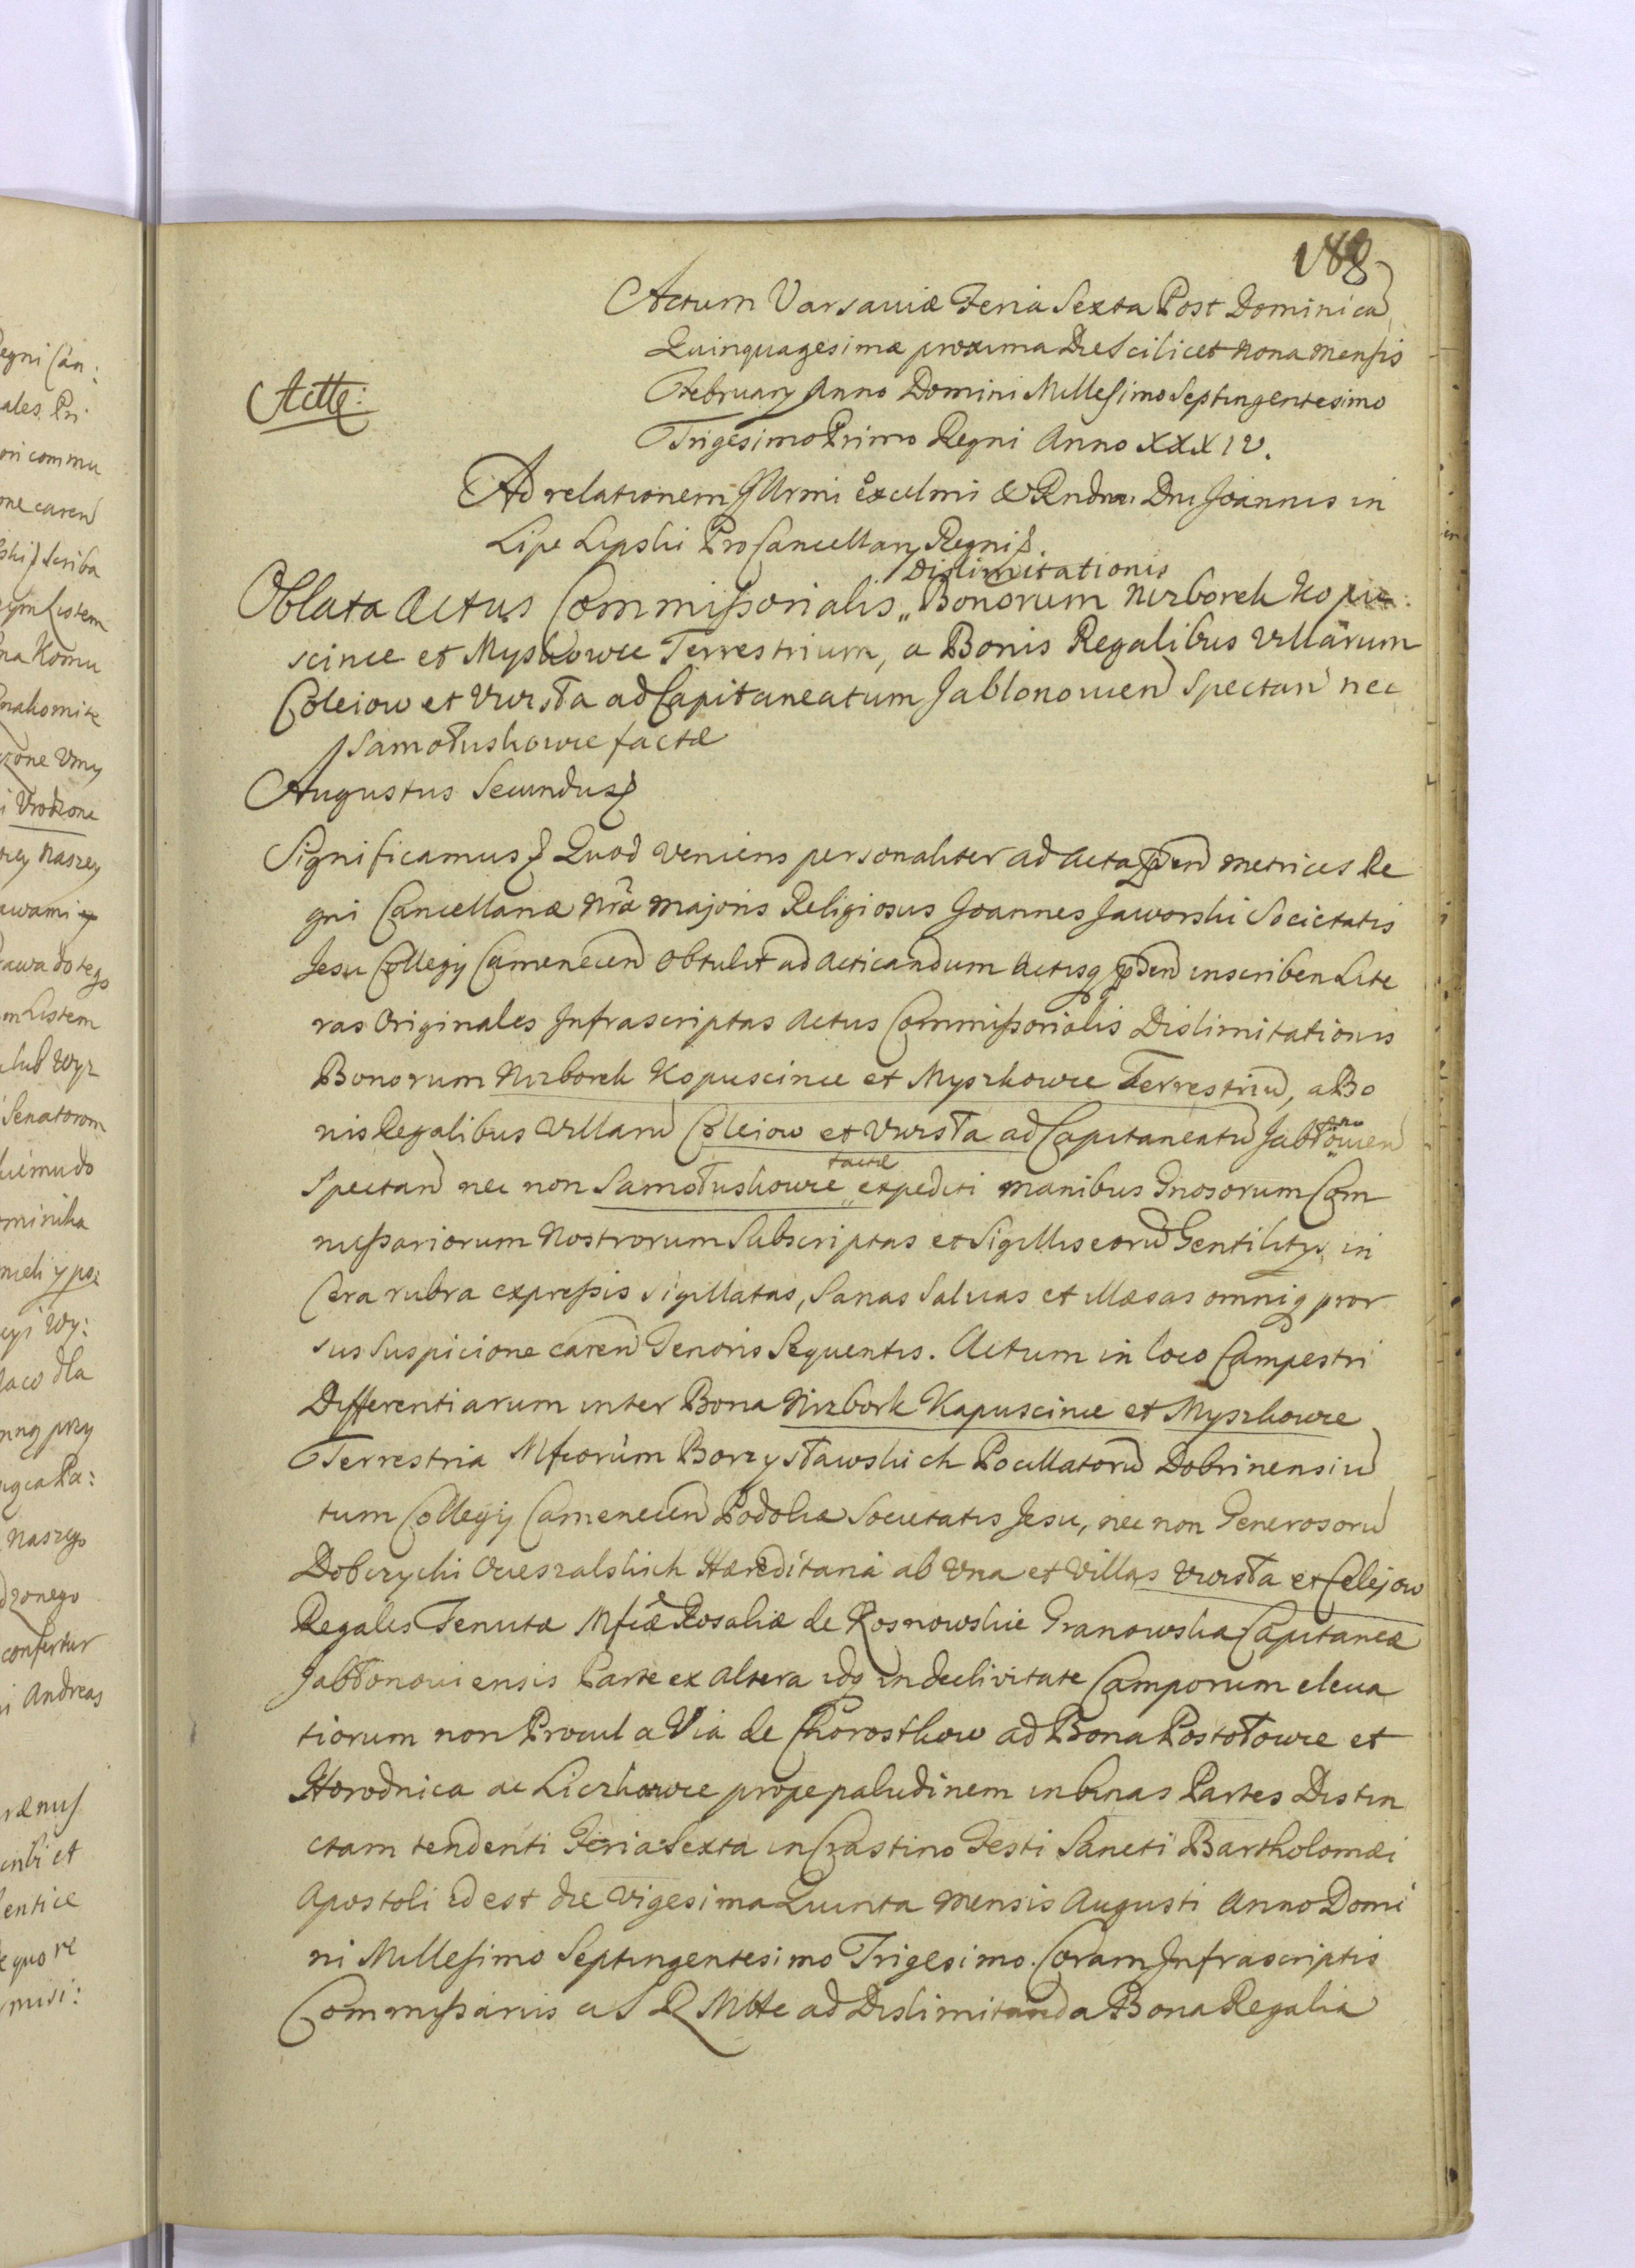 188
Actum Varsaviæ Feria Sexta Post Dominicā
Quinquagesimæ proxima Die Scilicet nona mensis
February Anno Domini Millesimo Septingentesimo
Trigesimo Primo Regni Anno XXXIV.
Actte:
Ad relationem Illrmi Excelmi & Rndmi Dni Joannis in
Lipe Lipski ProCancellary Regni
Dislimitationis
Oblata Actus Commissorialis „ Bonorum Nizborek Kopie:
scince et Myszkowce Terrestrium, a Bonis Regalibus Villarum
Coleiow et Uwisła ad Capitaneatum Jablonowien Spectan nec
Samołuskowce factæ
Augustus Secundus
Significamus Quod veniens personaliter ad Acta pñ metrices Re
gni Cancellariæ Nræ Majoris Religiosus Joannes Jaworski Societatis
Jesu Collegij Camenecen obtulit ad Acticandum Actisq inscriben Lite
ras Originales Infrascriptas Actus Commissorialis Dislimitationis
Bonorum Nizborek Kopuscince et Myszkowce Terrestriū, a Bo
nis Regalibus Villarū Coleiow et Uwisła ad Capitaneatū Jabłonowien
Spectan nec non Samołuskowce factæ expediti manibus Gnosorum Com
missariorum Nostrorum Subscriptas et Sigillis eorū Gentilitys in
Cera rubra expressis sigillatas, Sanas Salvas et illæsas omniq pror
sus Suspicione caren Tenoris Sequentis. Actum in loco Campestri
Differentiarum inter Bona Nizbork Kapuscince et Myszkowce
Terrestria Mficorum Borzysławskich Pocillatorū Dobrinensiū
tum Collegij Camenecen Podoliæ Societatis Jesu, nec non Generosorū
Hæreditaria ab Una et Villas Uwisła et Celejow
Regales Tenutæ Mficæ Rosaliæ de Rosnowskie Granowska Capitaneæ
Jabłonoviensis Parte ex Altera idq in declivitate Camporum eleva
tiorum non Procul a Via de Chorostkow ad Bona Postołowce et
Horodnica ac Liczkowce prope paludinem in binas Partes Distin
ctam tendenti Feria Sexta in Crastino Festi Sancti Bartholomæi
Apostoli id est die Vigesima Quinta mensis Augusti Anno Domi
ni Millesimo Septingentesimo Trigesimo. Coram Infrascriptis
Commissarijs a S R Mtte ad Dislimitanda Bona Regalia